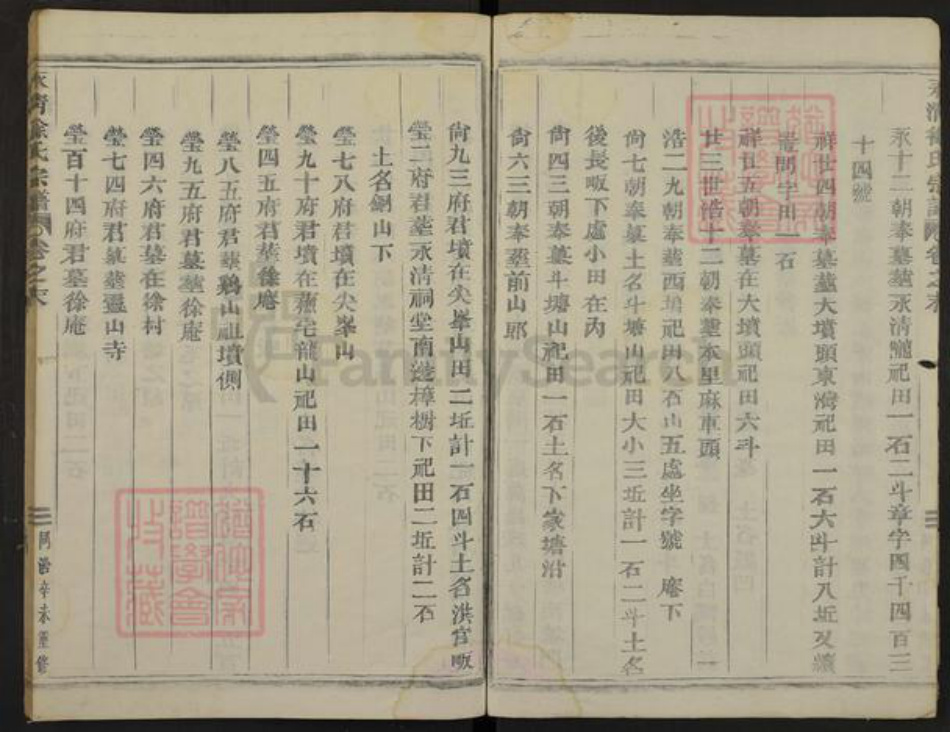 永清徐氏宗譜 卷之末
永十二朝奉墓塟永清 祀田一石二斗章字四千四百三
十四號
祥廿四朝奉墓塟大墳頭東 祀田一石六斗計八坵又
問字田一石
祥廿五朝奉墓在大墳頭祀田六斗
廿三世浩十二朝奉塟本里麻車頭
浩二九朝奉塟西 祀田八石山五處坐字號 庵下
尙七朝奉墓土名斗塘山祀田大小三坵計一石二斗土名
後長畈下處小田在內
尙四三朝奉墓斗塘山祀田一石土名下家塘沿
尙六三朝奉塟前山郎
尙九三府君墳在尖峯山田二坵計一石四斗土名洪官畈
瑩二府君塟永清祠堂南邊樟樹下祀田二坵計二石
土名銅山下
瑩七八府君墳在尖峯山
瑩九十府君墳在 宅龍山祀田一十六石
瑩四五府君塟徐庵
瑩八五府君塟鷄山祖墳側
瑩九五府君墓塟徐庵
瑩四六府君墓在徐村
瑩七四府君墓塟靈山寺
瑩百十四府君墓徐庵
永清徐氏宗譜 卷之末
三 同治辛未重修
FamilySearch